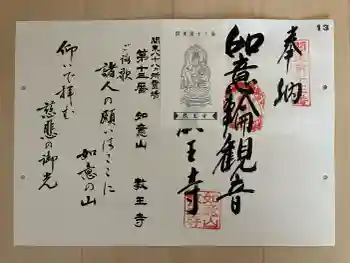 13
奉納
如意輪観音
教王寺
関東八十八ヵ所霊場
第十三番 如意山 教王寺
ご詠歌
諸人の願いはここに如意の山
仰いで拝む慈悲の御光